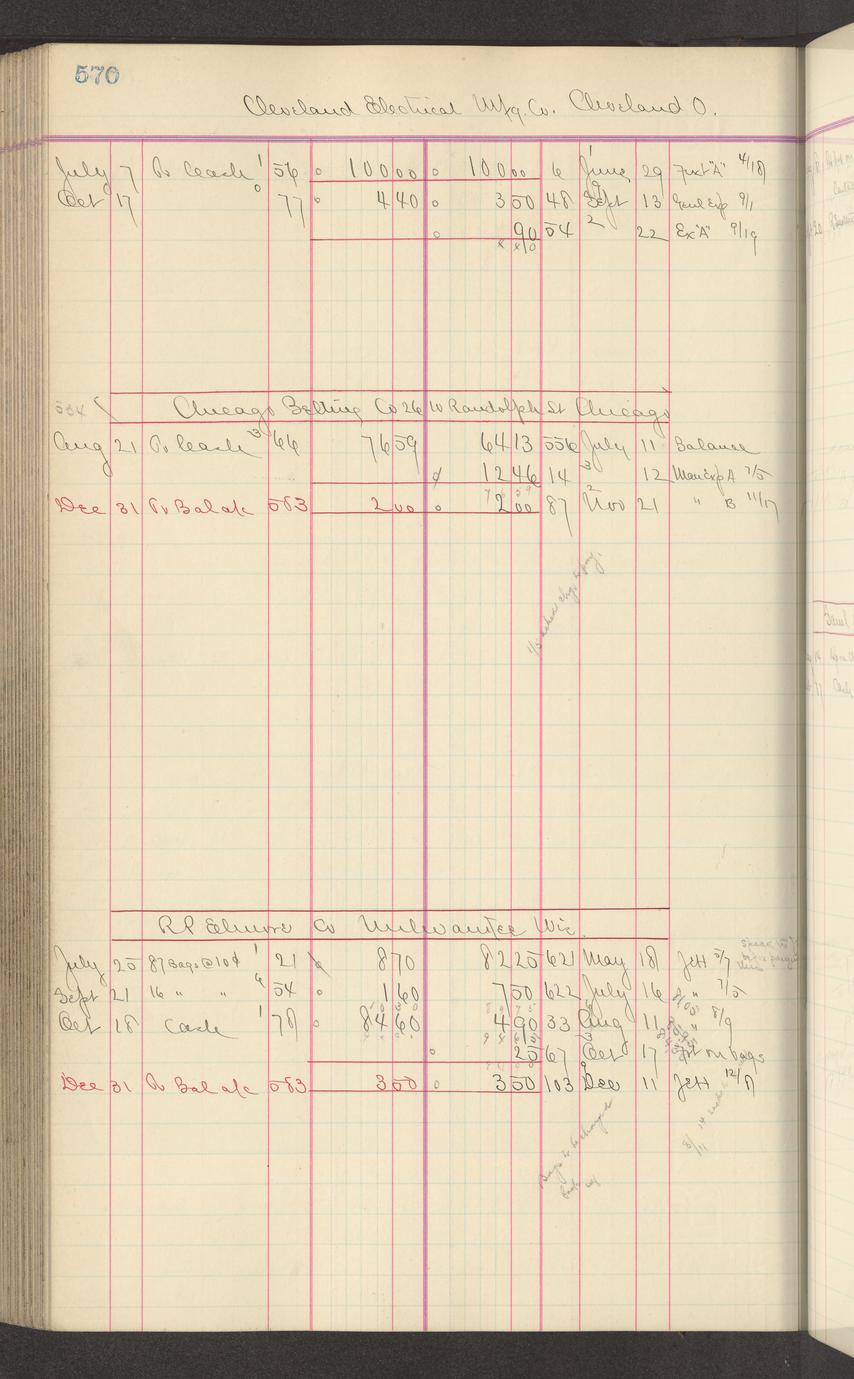 570
Cleveland Electrical Mfg. Co. Cleveland O.
July 7 To Cash 1 56 100 00 100 00 6 June 29 "A" 4/18
Oct 17 77 4 40 3 50 48 Sept 13 Genl Exp 9/1
90 54 2 22 Ex "A" 9/19
554 Chicago Belting Co 26 W Randolph St Chicago
Aug 21 To Cash 3 66 76 59 64 13 556 July 11 Balance
12 46 14 3 12 Man Exp A 7/5
Dec 31 To Bal a/c 583 2 00 2 00 87 Nov 21 " B 11/17
R P Elmore Co Milwaukee Wis.
July 25 87 Bags @ 10¢ 1 21 8 70 82 25 621 May 18 JCH 5/7
Sept 21 16 " " 54 1 60 7 50 622 July 16 " 7/5
Oct 18 Cash 1 78 84 60 4 90 33 Aug 11 " 8/9
25 67 Oct 17 on bags
Dec 31 To Bal a/c 583 3 50 3 50 103 Dec 11 JCH 12/8
Bags to be charged